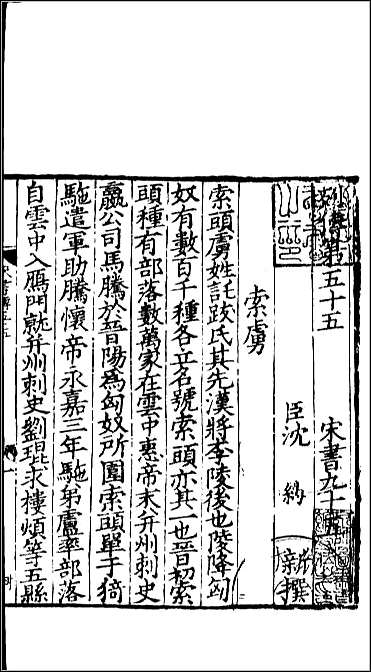 列傳第五十五 宋書九十五
臣沈 約 新撰
索虜
索頭虜姓託跋氏其先漢將李陵後也陵降匈
奴有數百千種各立名號索頭亦其一也晉初索
頭種有部落數萬家在雲中惠帝末并州刺史東
嬴公司馬騰於晉陽爲匈奴所圍索頭單于猗
䮃遣軍助騰懷帝永嘉三年䮃弟盧率部落
自雲中入鴈門就并州刺史劉琨求樓煩等五縣